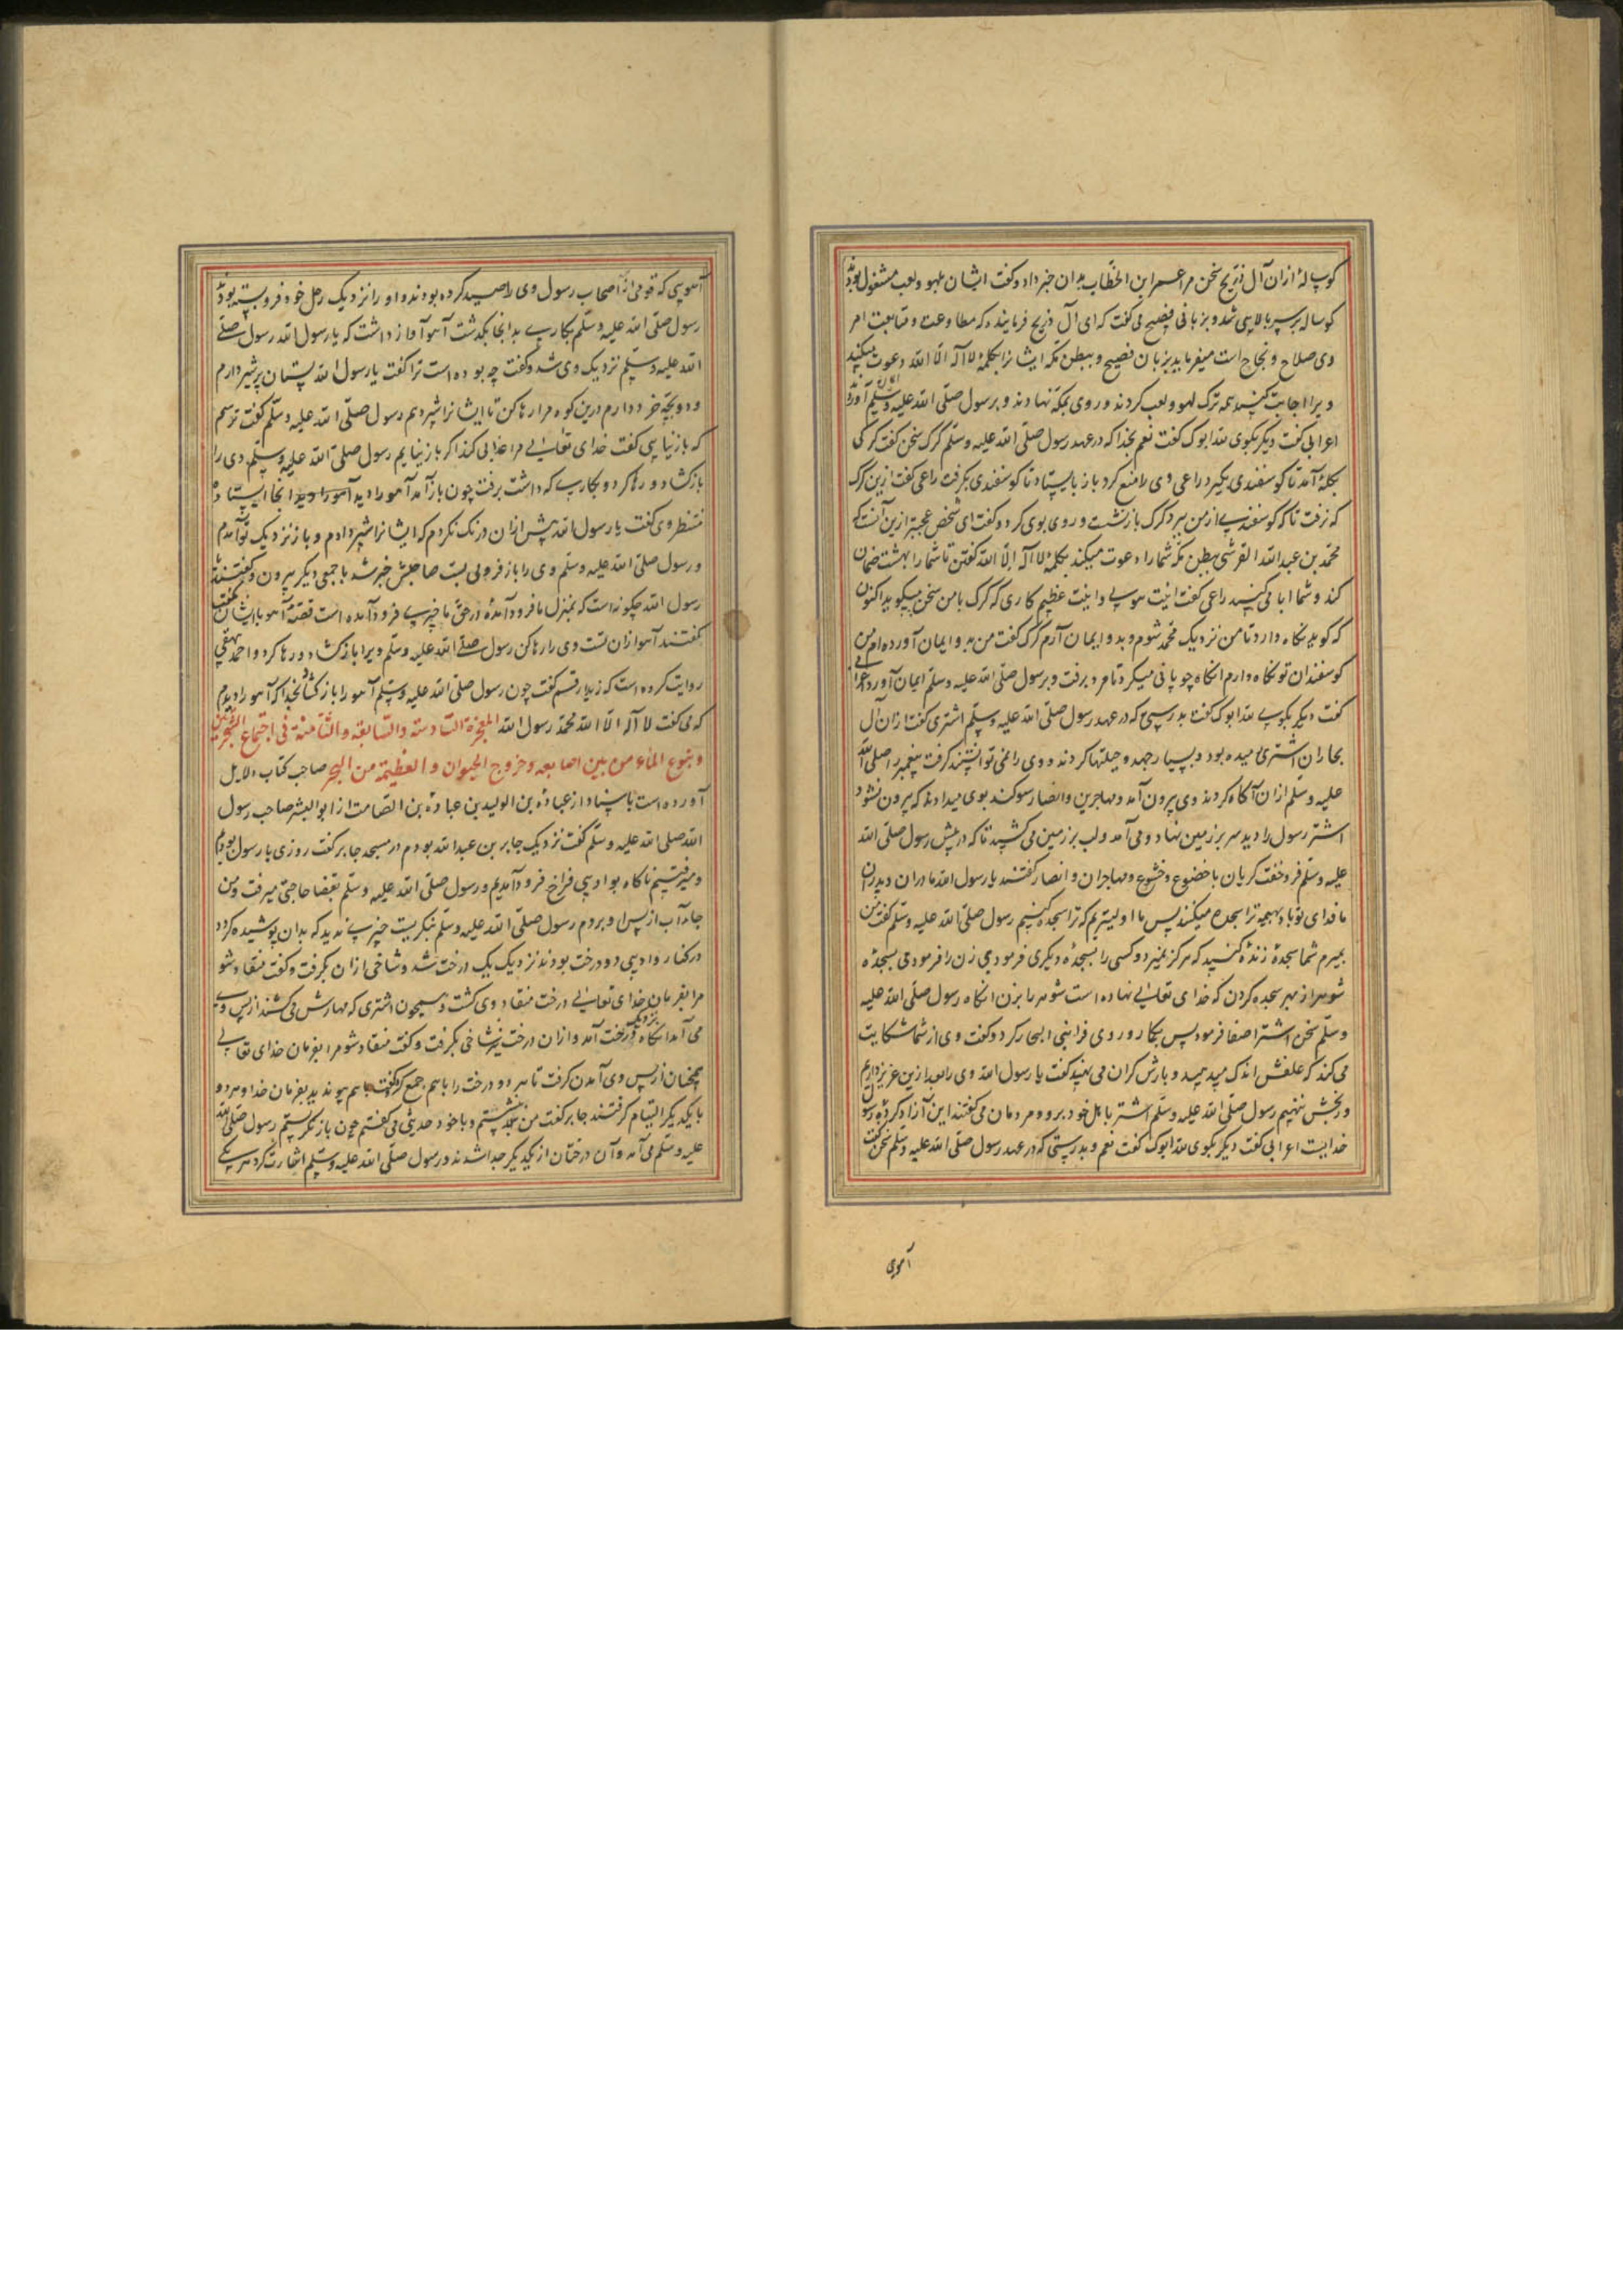 کوسالهٔ ازان آل ذریح سخن مر عمر ابن الخطّاب بدان خبر داد و کفت ایشان بلهو و لعب مشغول بودند
کوساله بر سر بالایی شد و بزبانی فصیح می کفت که ای آل ذریح فرماینده که مطاوعت و متابعت امر
وی صلاح و نجاح است میفرماید بزبان فصیح و ببطن مکه ایشانرا بکلمهٔ لا اله الّا الله دعوت میکند
ویرا اجابت کنید همه ترک لهو و لعب کردند و روی بمکه نهادند و برسول صلّی الله علیه وسلّم آوردند
اعرابی کفت دیکر بکوی لله ابوک کفت نعم بخدا که در عهد رسول صلّی الله علیه وسلّم کرک سخن کفت کرکی
بکله آمد تا کوسفندی بکیرد راعی وی را منع کرد باز بایستاد تا کوسفندی بکرفت راعی کفت ازین کرک
که نرفت تا که کوسفندی از من ببرد کرک بازنشست و روی بوی کرد و کفت ای شخص عجبتر ازین آنست که
محمّد بن عبد الله القرشی ببطن مکّه شما را دعوت میکند بکلمهٔ لا اله الّا الله کفتن تا شما را بهشت ضمان
کند و شما ابا می کنید راعی کفت اینت هولی و اینت عظیم کاری که کرک با من سخن میکوید اکنون
که کوید نکاه دارد تا من نزدیک محمّد شوم و بدو ایمان آرم کرک کفت من بدو ایمان آورده ام من
کوسفندان تو نکاه دارم انکاه چوپانی میکرد تا مرد برفت و برسول صلّی الله علیه وسلّم ایمان آورد اعرابی
کفت دیکر بکوی لله ابوک کفت بدرستی که در عهد رسول صلّی الله علیه وسلّم اشتری کفت ازان آل
بحاران اشتری رمیده بود و بسیار جهد و حیلتها کردند و وی را نمی توانستند کرفت پیغمبر را صلّی الله
علیه وسلّم ازان آکاه کردند وی بیرون آمد و مهاجرین و انصار سوکند بوی میدادند که بیرون نشود
اشتر رسول را دید سر بر زمین نهاد و می آمد و لب بر زمین می کشید تا که در پیش رسول صلّی الله
علیه وسلّم فرو خفت کریان با خضوع و خشوع و مهاجران و انصار کفتند یا رسول الله مادران و پدران
ما فدای تو باد بهیمه ترا سجده میکنند پس ما اولیتریم که ترا سجده کنیم رسول صلّی الله علیه وسلّم کفت من
بمیرم شما سجدهٔ زندهٔ کنید که هرکز نمیرد و کسی را بسجدهٔ دیکری فرمودمی زن را فرمودمی بسجدهٔ
شوهر از بهر سجده کردن که خدای تعالی نهاده است شوهر را بر زن انکاه رسول صلّی الله علیه
وسلّم سخن اشتر اصغا فرمود پس بکار و روی فرا بنی النجار کرد و کفت وی از شما شکایت
می کند که علفش اندک میدهید و بارش کران می نهید کفت یا رسول الله وی را بعد ازین عزیز داریم
و رنجش ننهیم رسول صلّی الله علیه وسلّم اشتر با اهل خود برو و مردمان می کفتند این آزاد کردهٔ رسول
خدایست اعرابی کفت دیکر بکوی لله ابوک کفت نعم و بدرستی که در عهد رسول صلّی الله علیه وسلّم سخن کفت
آهویی
آهویی که قومی از اصحاب رسول وی را صید کرده بودند و او را نزدیک رحل خود فرو بسته بودند
رسول صلّی الله علیه وسلّم بکاری بدانجا بکذشت آهو آواز داشت که یا رسول الله رسول صلّی
الله علیه وسلّم نزدیک وی شد و کفت چه بوده است ترا کفت یا رسول الله پستان پر شیر دارم
و دو بچّه خرد دارم درین کوه مرا رها کن تا ایشانرا شیر دهم رسول صلّی الله علیه وسلّم کفت ترسم
که باز نیایی کفت خدای تعالی مرا عذابی کند اکر باز نیایم رسول صلّی الله علیه وسلّم وی را
بازکشاد و رها کرد و بکاری که داشت برفت چون باز آمد آهو را دید آهو را دید انجا ایستاده
منتظر وی کفت یا رسول الله پیش ازان درنک نکردم که ایشانرا شیر دادم و باز نزدیک تو آمدم
و رسول صلّی الله علیه وسلّم وی را باز فرو می بست صاحبش خبر شد با جمعی دیکر بیرون و کفتند یا
رسول الله چکونه است که بمنزل ما فرود آمدهٔ در حق ما چیزی فرود آمده است قصّهٔ آهو با ایشان بکفت
کفتند آهو ازان تست وی را رها کن رسول صلّی الله علیه وسلّم ویرا بازکشاد و رها کرد و احمد بیهقی
روایت کرده است که زید ارقم کفت چون رسول صلّی الله علیه وسلّم آهو را بازکشاد بخدا که آهو را دیدم
که می کفت لا اله الّا الله محمّد رسول الله المعجزة السّادسة والسّابعة والثّامنة فی اجتماع الشجرتین
و نبوع الماء من بین اصابعه و خروج الحیوان والعظیمة من البحر صاحب کتاب الدلایل
آورده است باسناد از عبادة بن الولید بن عبادة بن الصّامت از ابو الیسر صاحب رسول
الله صلی الله علیه وسلّم کفت نزدیک جابر بن عبد الله بودم در مسجد جابر کفت روزی با رسول بودم
و میرفتیم ناکاه بوادیی فراخ فرود آمدیم و رسول صلّی الله علیه وسلّم بقضا حاجتی میرفت و من
جاء آب از پس او بردم رسول صلّی الله علیه وسلّم بنکریست چیزی ندید که بدان پوشیده کردد
در کنار وادیی دو درخت بودند نزدیک یک درخت شد و شاخی ازان بکرفت و کفت منقاد شو
مرا بفرمان خدای تعالی درخت منقاد وی کشت و همچون اشتری که مهارش می کشند از پس وی
می آمد انکاه نزدیک درخت آمد و ازان درخت نیز شاخی بکرفت و کفت منقاد شو مرا بفرمان خدای تعالی
همچنان از پس وی آمدن کرفت تا هر دو درخت را باهم جمع کرد و کفت باهم پیوندید بفرمان خدا و هر دو
با یکدیکر التیام کرفتند جابر کفت من بنشستم و با خود حدیثی می کفتم چون باز نکرستم رسول صلّی الله
علیه وسلّم می آمد و آن درختان از یکدیکر جدا شدند و رسول صلّی الله علیه وسلّم اشارت کرد هر یکی